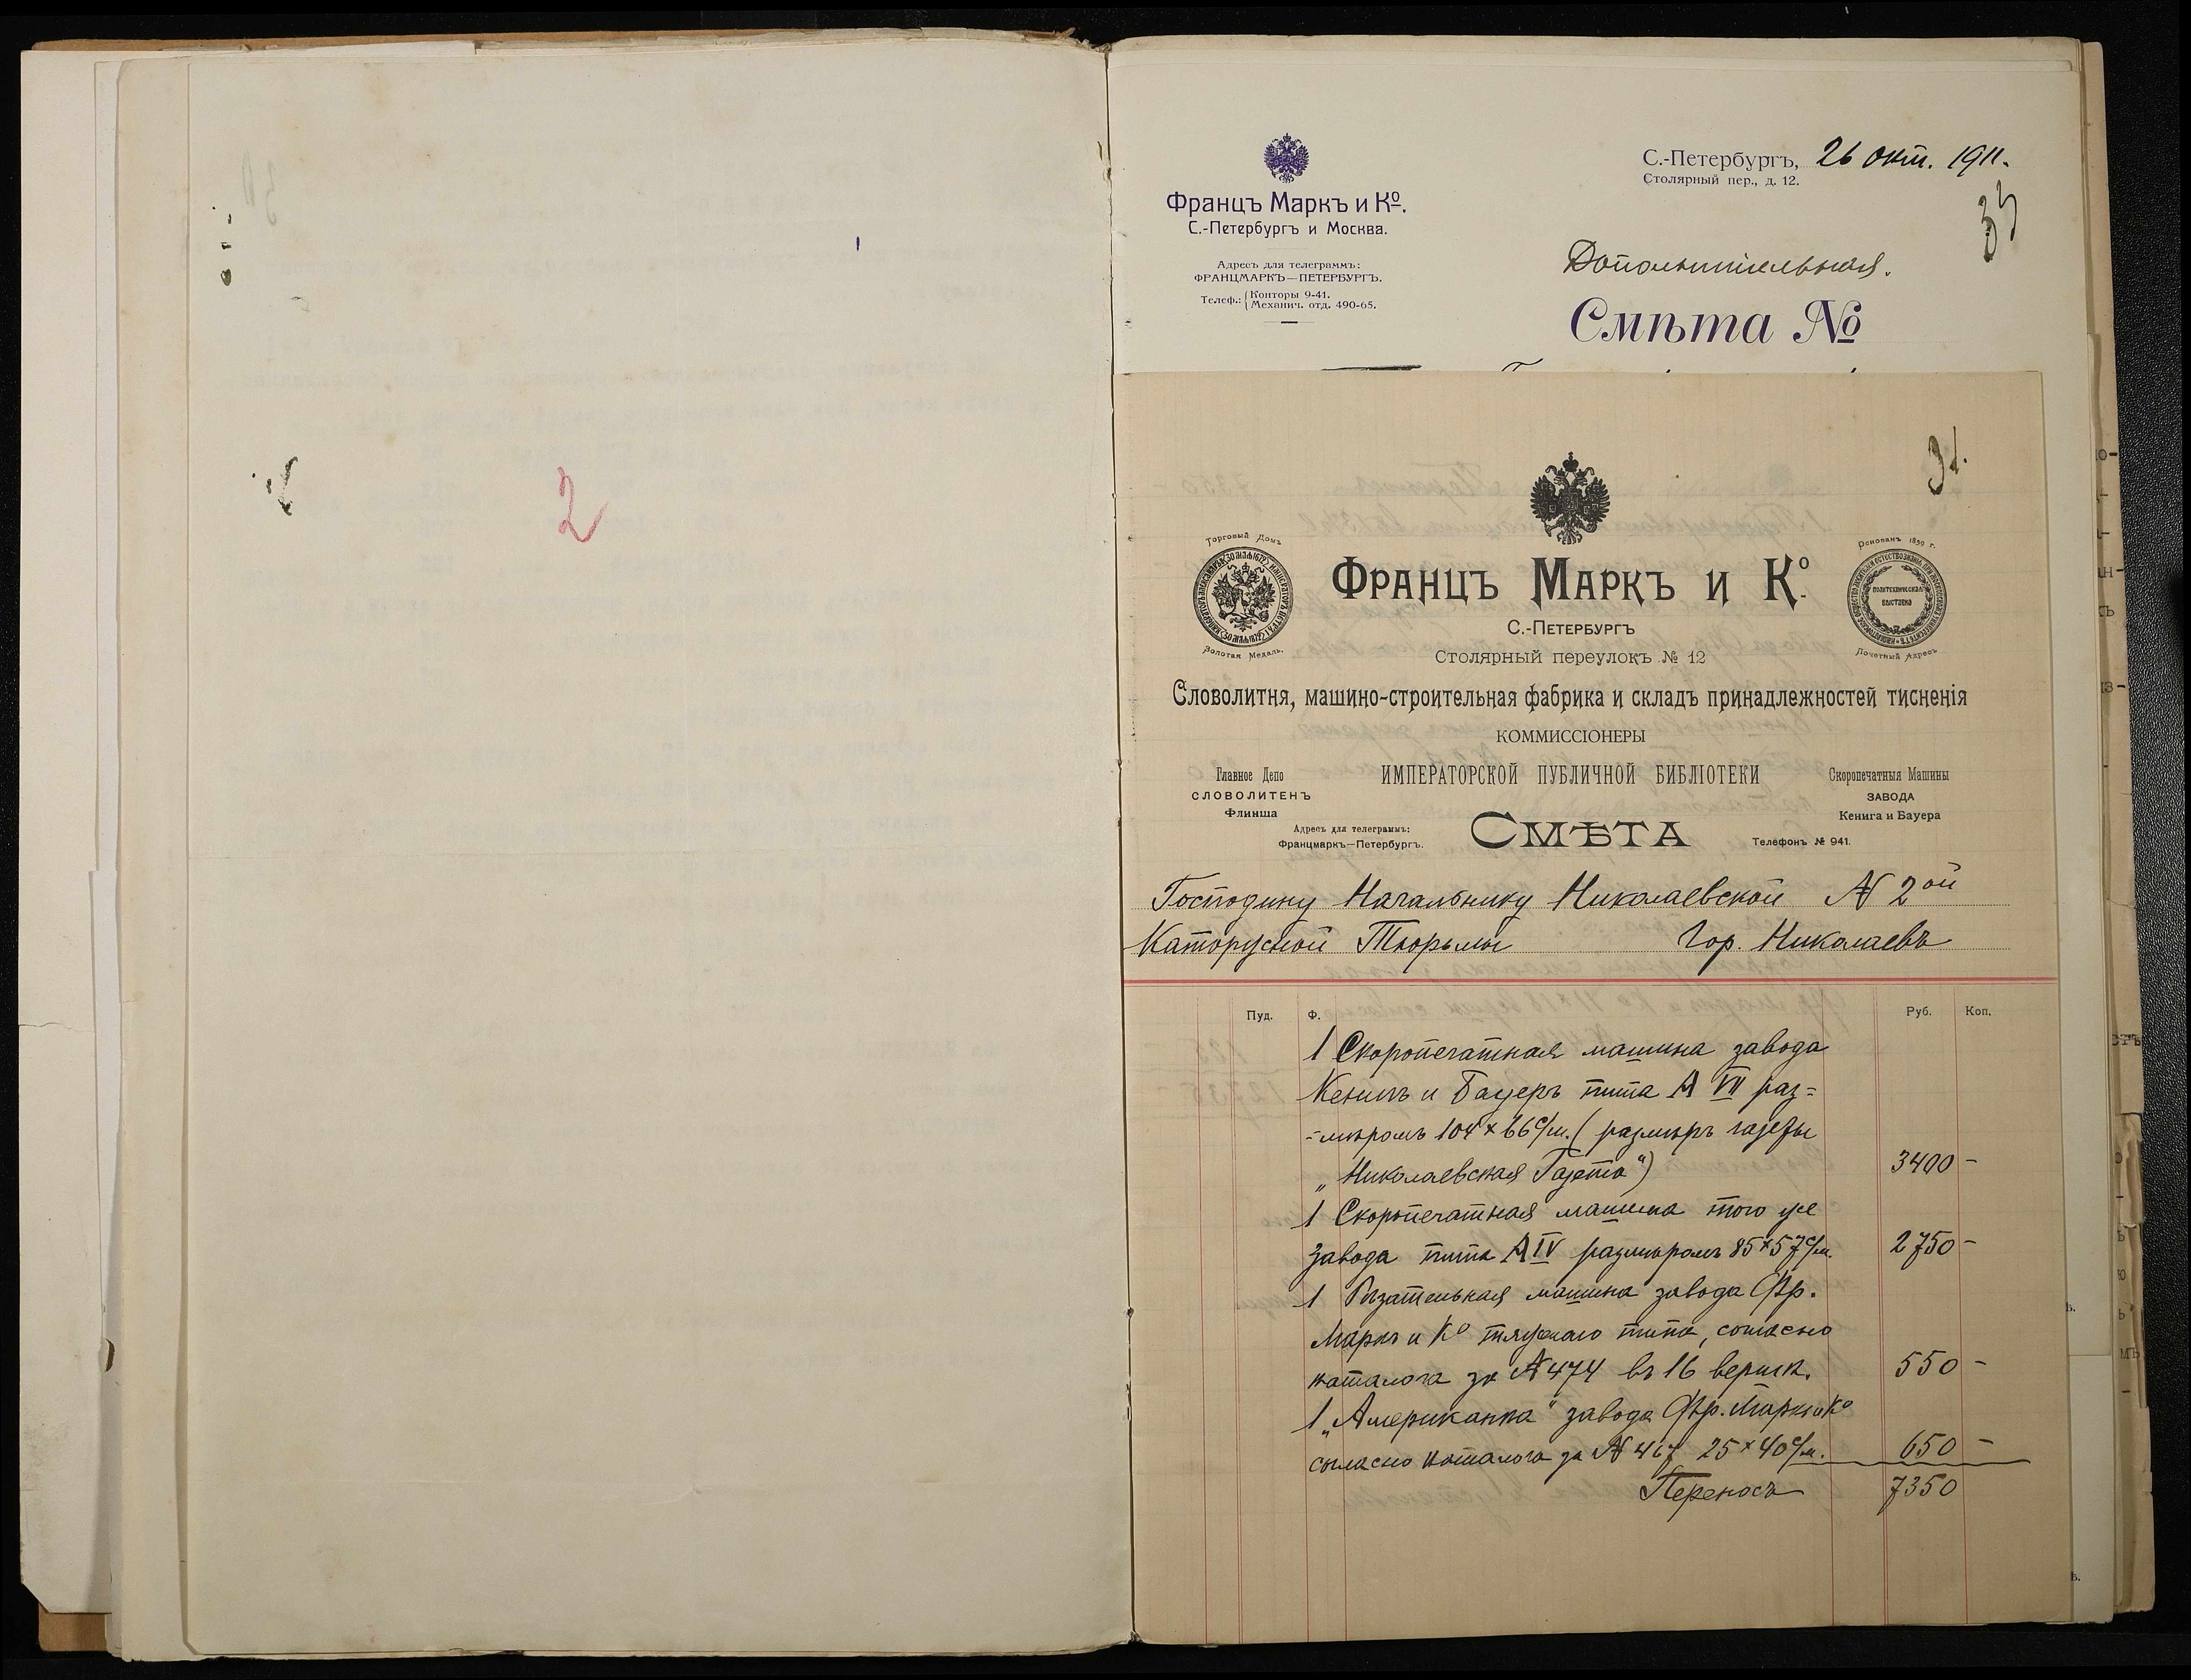 2
Францъ Маркъ и Кº.
С.-Петербургъ и Москва.
Адресъ для телеграммъ:
ФРАНЦМАРКЪ—ПЕТЕРБУРГЪ.
Телеф.: Конторы 9-41.
Механич. отд. 490-65.
С.-Петербургъ, 26 окт. 1911.
Столярный пер., д. 12.
Дополнительная.
Смѣта №
31.
Торговый Домъ
Золотая Медаль.
Основанъ 1859 г.
ПОЛИТЕХНИЧЕСКАЯ
ВЫСТАВКА
Почетный Адресъ
Францъ Маркъ и Кº.
С.-Петербургъ
Столярный переулокъ № 12
Словолитня, машино-строительная фабрика и складъ принадлежностей тисненія
КОММИССІОНЕРЫ
ИМПЕРАТОРСКОЙ ПУБЛИЧНОЙ БИБЛІОТЕКИ
Главное Депо
СЛОВОЛИТЕНЪ
Флинша
Скоропечатныя Машины
ЗАВОДА
Кенига и Бауера
Адресъ для телеграммъ:
Францмаркъ—Петербургъ.
СМѢТА
Телефонъ № 941.
Господину Начальнику Николаевской № 2ой
Каторжной Тюрьмы Гор. Николаевъ
Пуд. Ф. Руб. Коп.
1 Скоропечатная машина завода
Кенигъ и Бауеръ типа А VII раз=
=мѣромъ 104×66 с/м. (размѣръ газеты
„Николаевская Газета") 3400 -
1 Скоропечатная машина того же
завода типа А IV размѣромъ 85×57 с/м. 2750 -
1 Рѣзательная машина завода Фр.
Маркъ и Кº тяжелаго типа, согласно
каталога за № 474 въ 16 вершк. 550 -
1 „Американка" завода Фр. Маркъ и Кº
согласно каталога за № 467 25×40 с/м. 650 -
Переносъ 7350